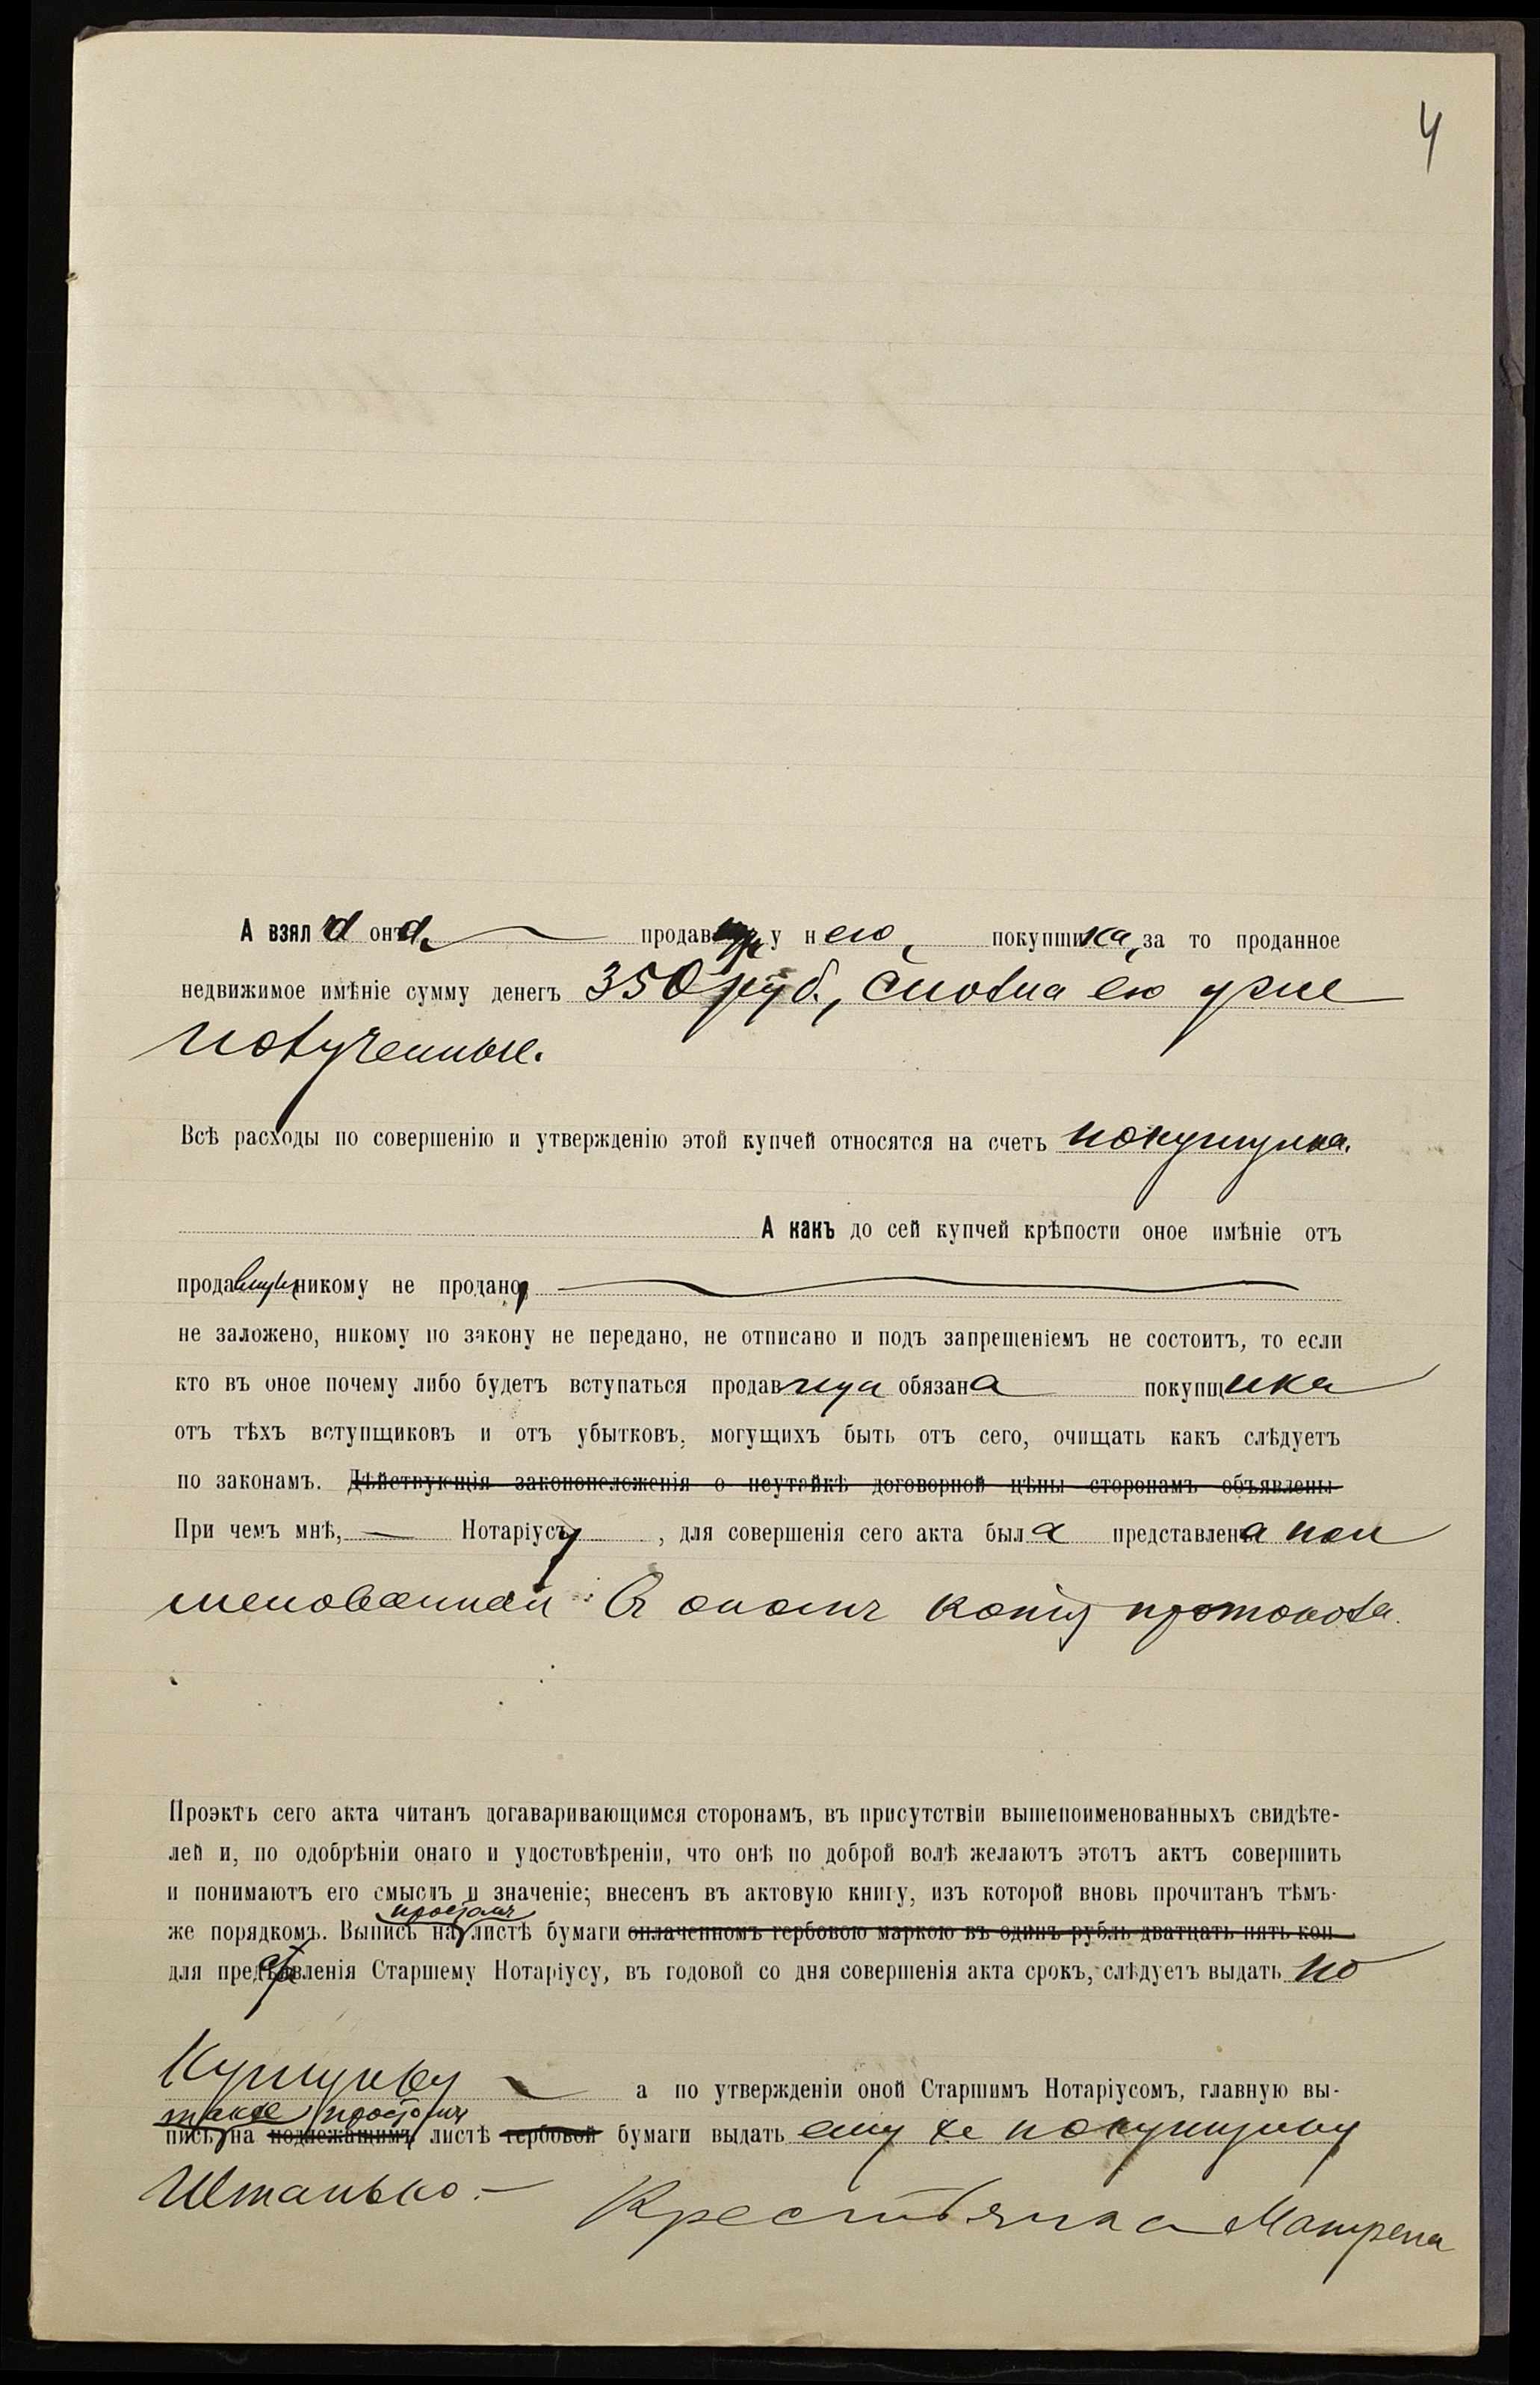 4
А взяла она, продавица у него, покупщика, за то проданное
недвижимое имѣніе сумму денегъ 350 руб., сполна ею уже
полученные.
Всѣ расходы по совершенію и утвержденію этой купчей относятся на счетъ покупщика.
А какъ до сей купчей крѣпости оное имѣніе отъ
продавицы никому не продано,
не заложено, никому по закону не передано, не отписано и подъ запрещеніемъ не состоитъ, то если
кто въ оное почему либо будетъ вступаться продавица обязана покупщика
отъ тѣхъ вступщиковъ и отъ убытковъ, могущихъ быть отъ сего, очищать какъ слѣдуетъ
по законамъ. Дѣйствующія законоположенія о неутайкѣ договорной цѣны сторонамъ объявлены
При чемъ мнѣ, Нотаріусу, для совершенія сего акта была представлена пои
менованная въ ономъ копія протокола.
Проэктъ сего акта читанъ договаривающимся сторонамъ, въ присутствіи вышепоименованныхъ свидѣте-
лей и, по одобрѣніи онаго и удостовѣреніи, что онѣ по доброй волѣ желаютъ этотъ актъ совершить
и понимаютъ его смыслъ и значеніе; внесенъ въ актовую книгу, изъ которой вновь прочитанъ тѣмъ-
простомъ
же порядкомъ. Выпись на листѣ бумаги оплаченномъ гербовою маркою въ одинъ рубль двадцать пять коп
для представленія Старшему Нотаріусу, въ годовой со дня совершенія акта срокъ, слѣдуетъ выдать по
купщику а по утвержденіи оной Старшимъ Нотаріусомъ, главную вы-
также простомъ
пись на подлежащимъ листѣ гербовой бумаги выдать ему же покупщику
Штанько.- Крестьянка Матрена